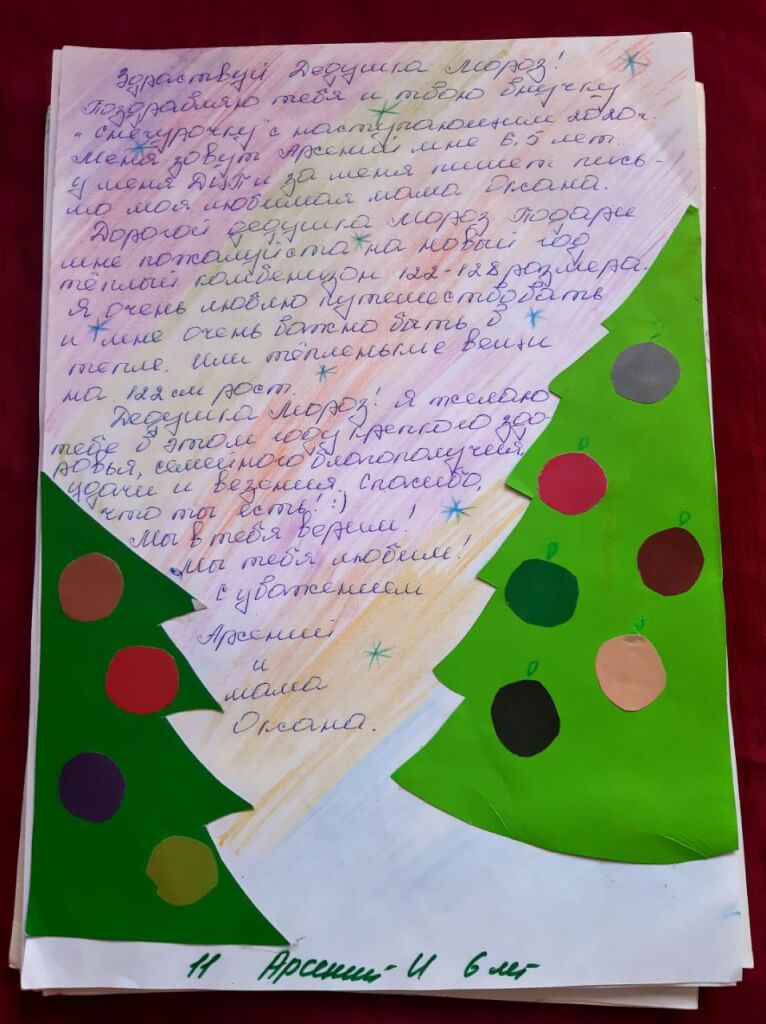 Здраствуй Дедушка Мороз!
Поздравляю тебя и твою внучку
"Снегурочку" с наступающим 2020г.
Меня зовут Арсений мне 6,5 лет.
У меня ДЦП и за меня пишет пись-
мо моя любимая мама Оксана.
Дорогой дедушка Мороз Подари
мне пожалуйста на новый год
тёплый комбенизон 122-128 размера.
Я очень люблю путешествовать
и мне очень важно быть в
тепле. Или тёпленькие вещи
на 122 см рост.
Дедушка Мороз! Я желаю
тебе в этом году крепкого здо-
ровья, семейного благополучия,
удачи и везения. Спасибо,
что ты есть! :)
Мы в тебя верим!
Мы тебя любим!
с уважением
Арсений
и
мама
Оксана.
11 Арсений И 6 лет